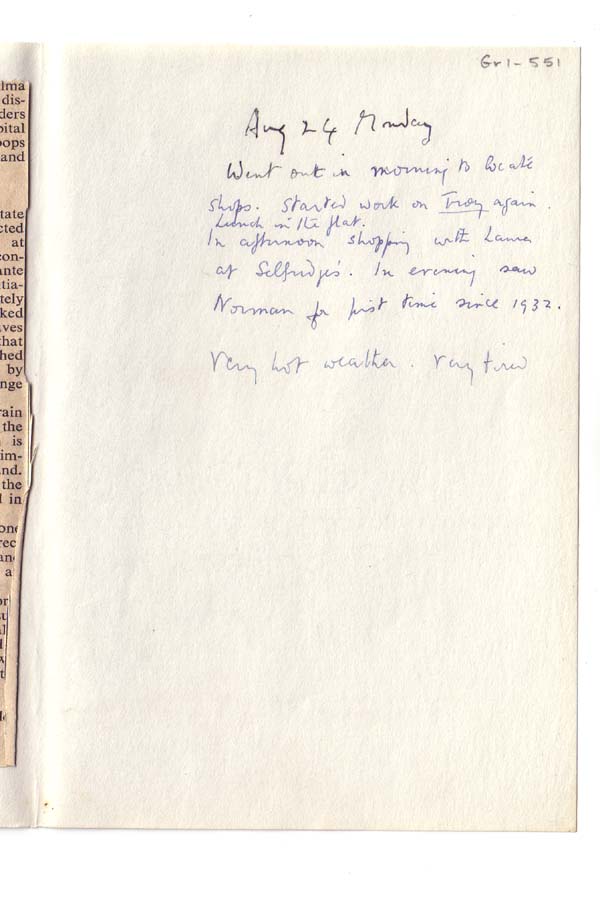 Gr1-551
Aug 24 Monday
Went out in morning to locate
shops. Started work on Troy again.
Lunch in the flat.
In afternoon shopping with Laura
at Selfridge's. In evening saw
Norman for first time since 1932.
Very hot weather. Very tired
lma
dis-
ders
pital
oops
and
tate
cted
at
con-
ante
tia-
tely
ked
ves
that
hed
by
nge
rain
the
is
im-
nd.
the
d in
one
rec
and
a
or